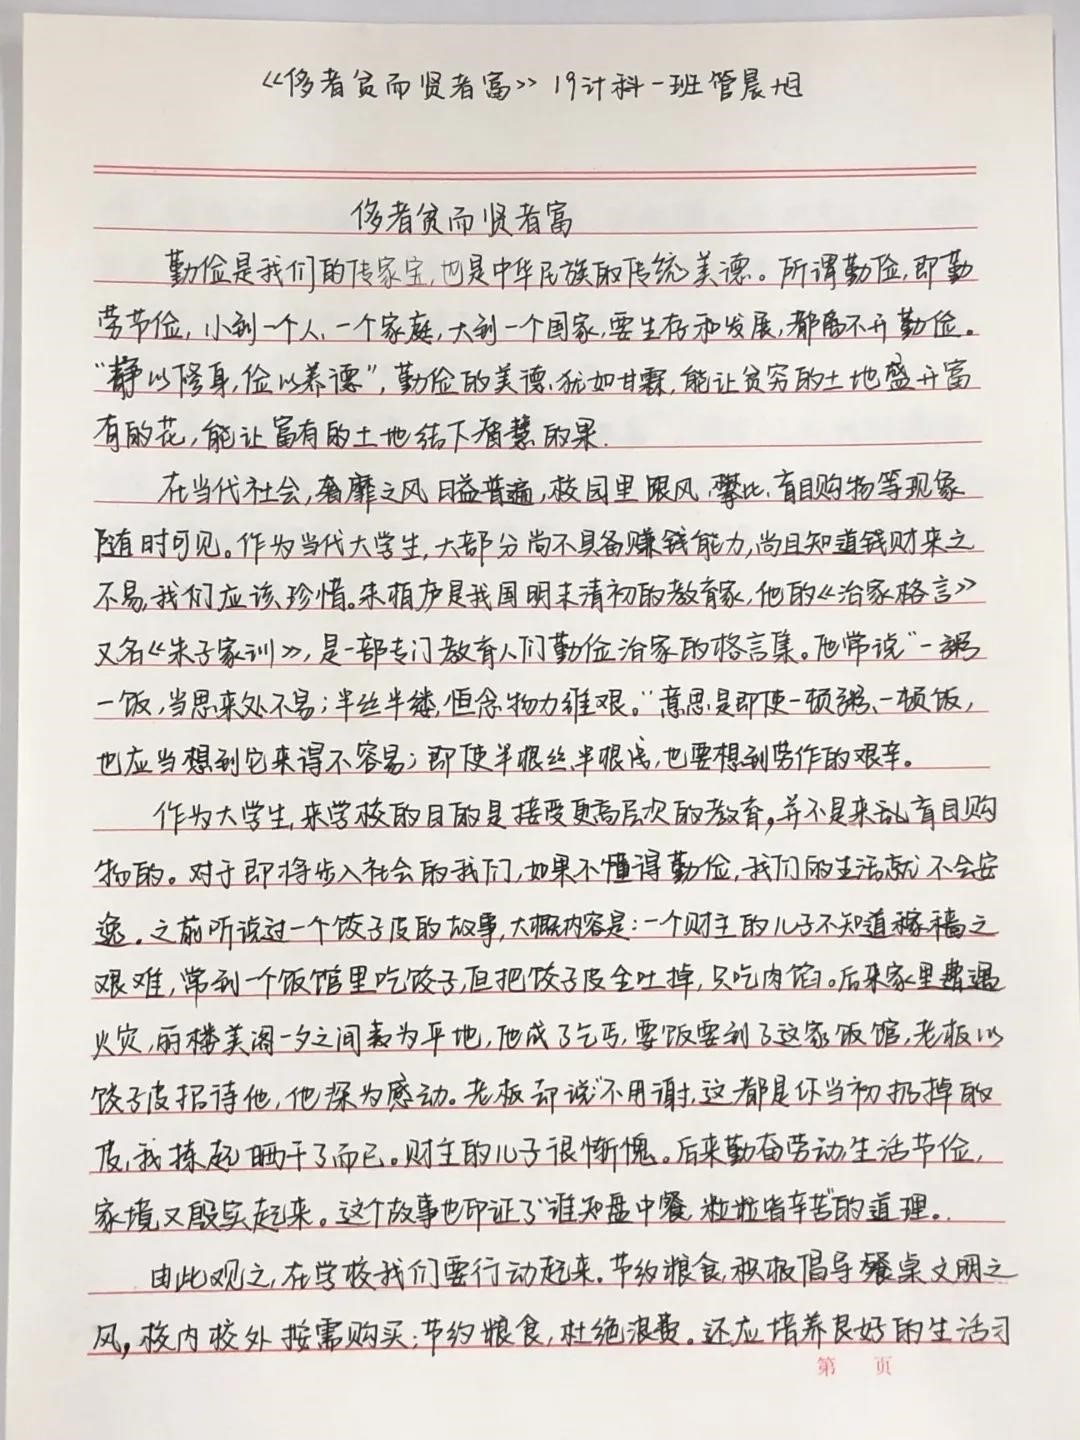 《侈者贫而贤者富》19计科一班管晨旭
侈者贫而贤者富
勤俭是我们的传家宝,也是中华民族的传统美德。所谓勤俭,即勤
劳节俭,小到一个人、一个家庭,大到一个国家,要生存和发展,都离不开勤俭。
“静以修身,俭以养德”,勤俭的美德,犹如甘霖,能让贫穷的土地盛开富
有的花,能让富有的土地结下智慧的果.
在当代社会,奢靡之风日益普遍,校园里跟风、攀比、盲目购物等现象
随时可见。作为当代大学生,大部分尚不具备赚钱能力,尚且知道钱财来之
不易,我们应该珍惜。朱柏庐是我国明末清初的教育家,他的《治家格言》
又名《朱子家训》,是一部专门教育人们勤俭治家的格言集。他常说“一粥
一饭,当思来处不易;半丝半缕,恒念物力维艰。”意思是即使一顿粥、一顿饭,
也应当想到它来得不容易;即使半根丝,半根线,也要想到劳作的艰辛。
作为大学生,来学校的目的是接受更高层次的教育,并不是来乱盲目购
物的。对于即将步入社会的我们,如果不懂得勤俭,我们的生活就不会安
逸。之前听说过一个饺子皮的故事,大概内容是:一个财主的儿子不知道稼穑之
艰难,常到一个饭馆里吃饺子,但把饺子皮全吐掉,只吃肉馅。后来家里遭遇
火灾,丽楼美阁一夕之间表为平地,他成了乞丐,要饭要到了这家饭馆,老板以
饺子皮招待他,他深为感动。老板却说“不用谢,这都是你当初扔掉的
皮,我拣起晒干了而已。财主的儿子很惭愧。后来勤奋劳动,生活节俭,
家境又殷实起来。这个故事也印证了“谁知盘中餐,粒粒皆辛苦”的道理。
由此观之,在学校我们要行动起来.节约粮食,积极倡导餐桌文明之
风,校内校外按需购买;节约粮食,杜绝浪费。还应培养良好的生活习
第 页